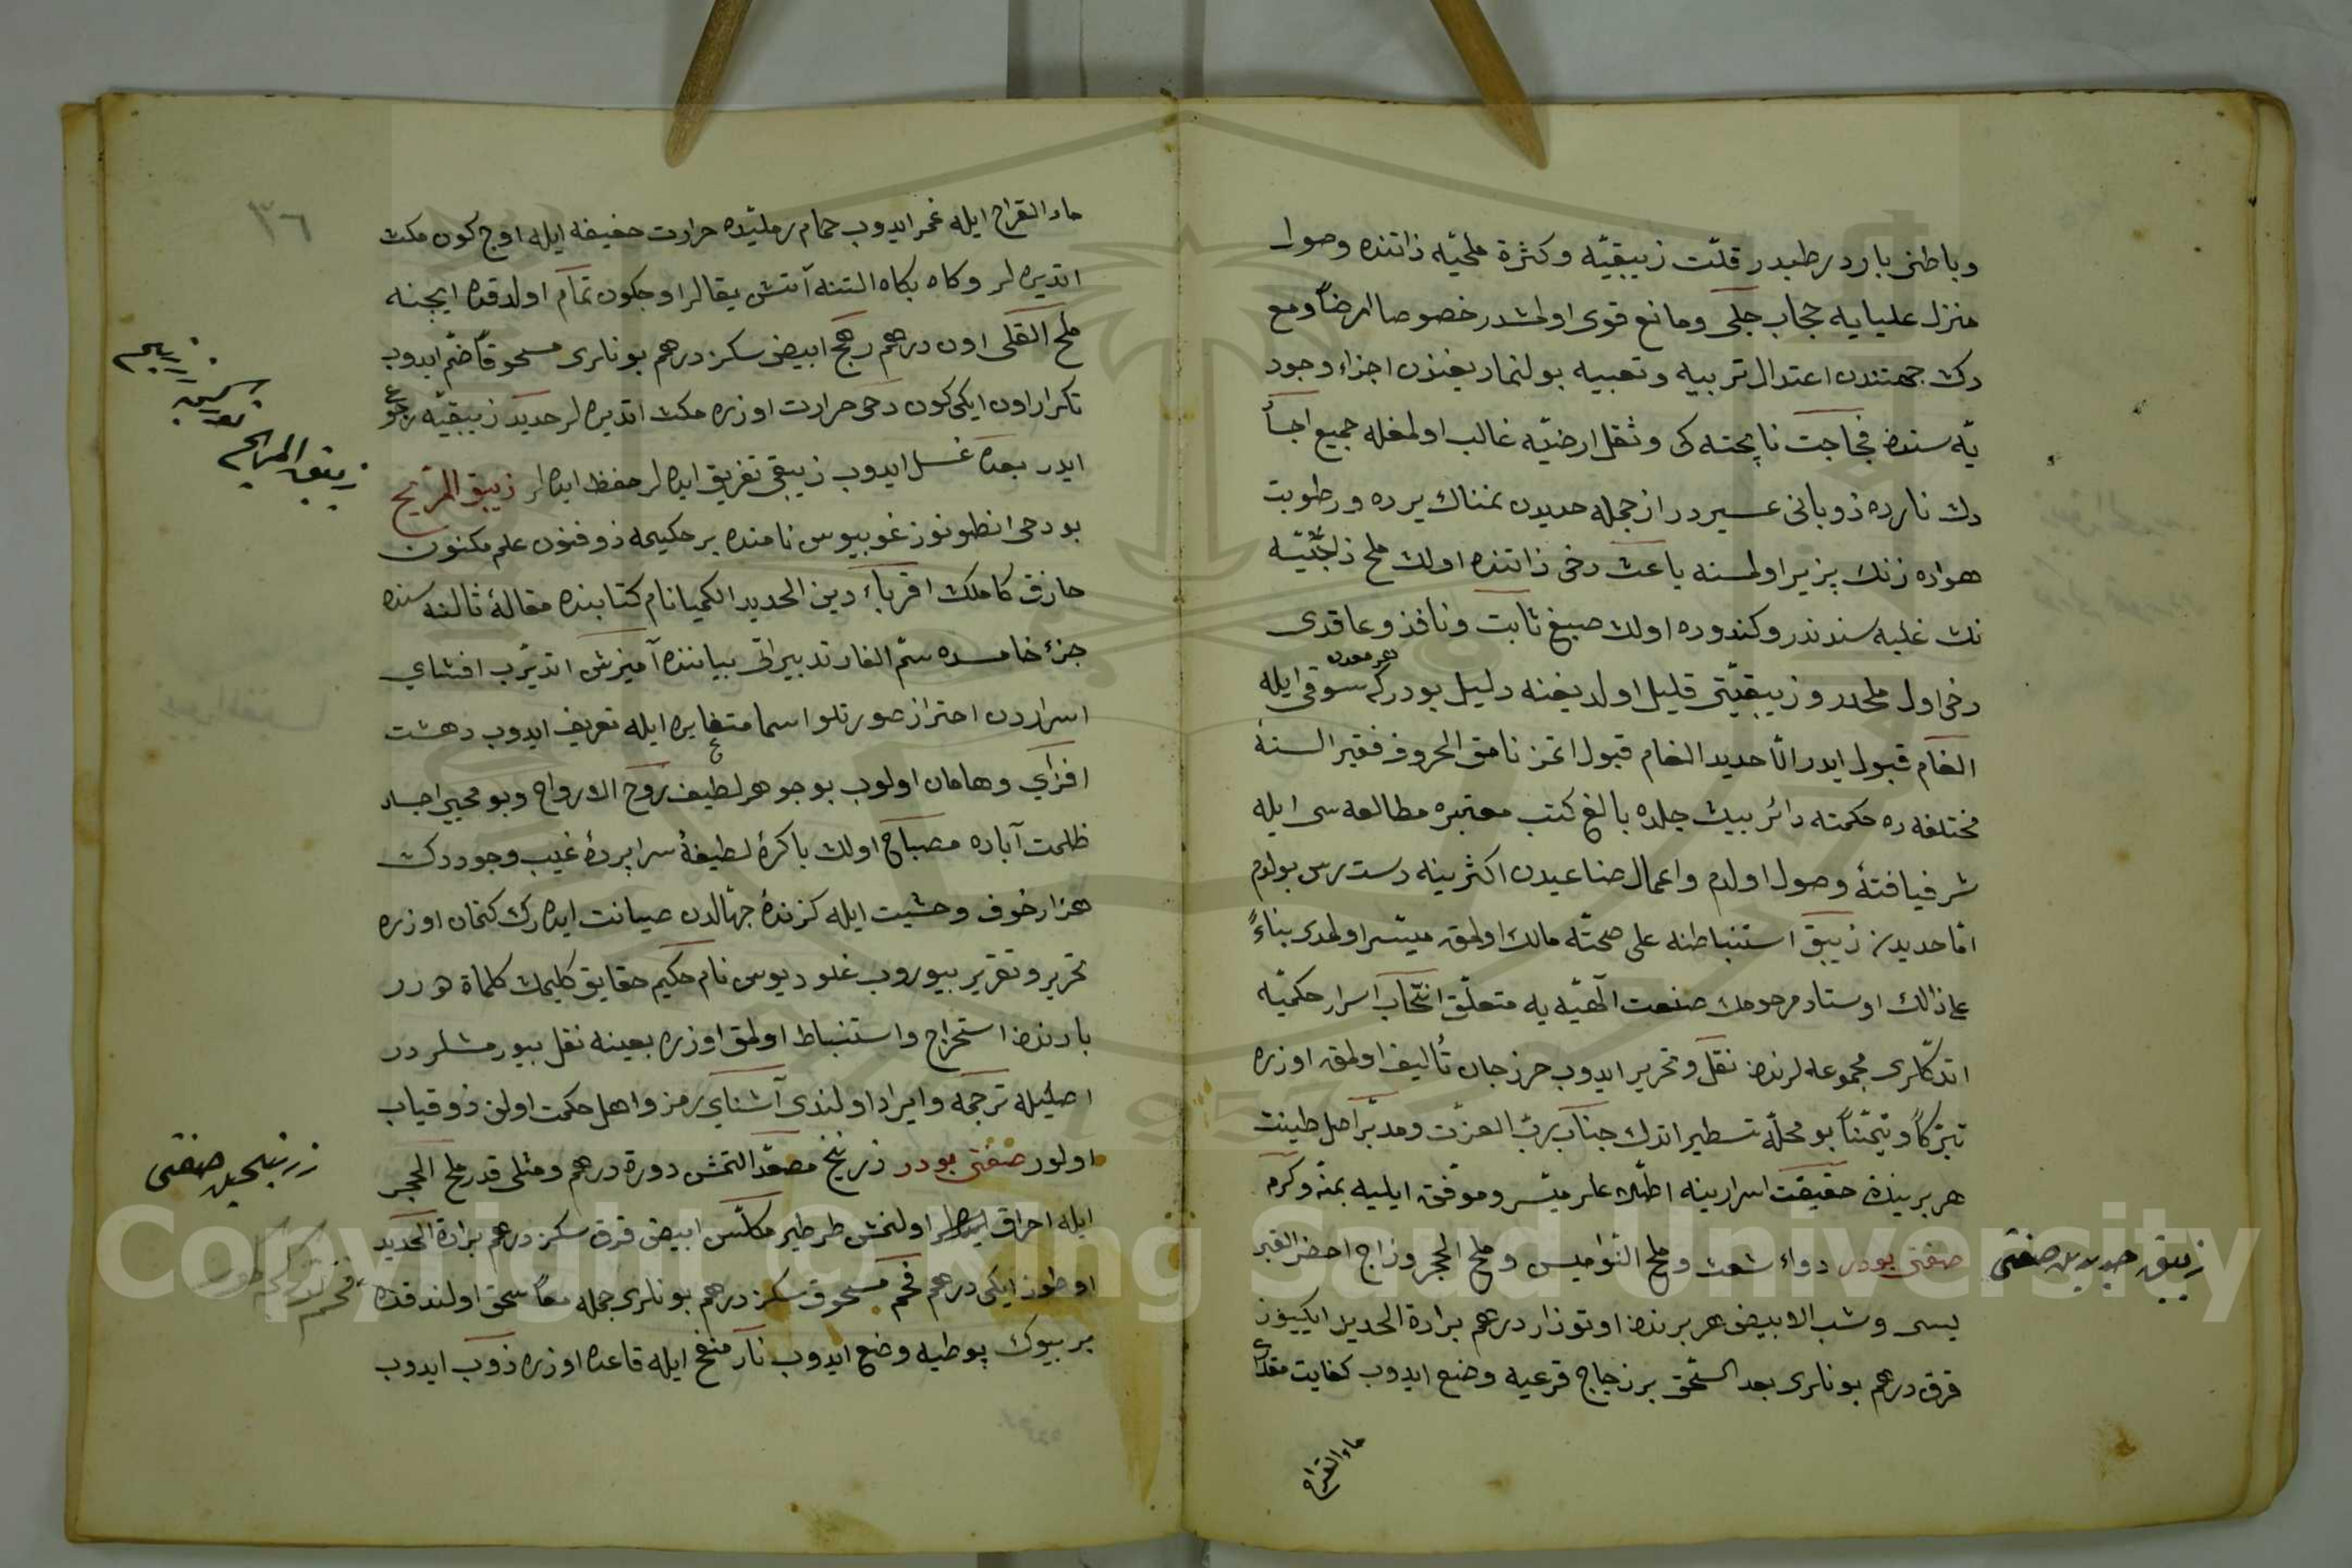 وباطنى بارد رطبدر قلّت زيبقيّه وكثرة ملحيّه ذاتنده وصول
منزل عليايه حجاب جلى ومانع قوى اولمشدر خصوصا ارضاً ومع
دك جهتندن اعتدال تربيه وتعبيه بولنمديغندن اجزاء وجود
يّه سنده فجاجت ناپخته كى وثقل ارضيّه غالب اولمغله جميع اجساد
دن نارده ذوبانى عسيردر از جمله حديدن نمناك يرده ورطوبت
هواده زنك پزير اولمسنه باعث دخى ذاتنده اولان ملح زاجيّه
نك غلبه سندندر وكندوده اولان صبغ ثابت ونافذ وعاقدى
دخى اول ملحدر وزيبقيّتى قليل اولديغنه دليل بودركه هر معدن سوقى ايله
الغام قبول ايدر الّا حديد الغام قبول اتمز نامق الحروف فقير السنه
مختلفه ده حكمته دائر بيك جلده بالغ كتب معتبره مطالعه سى ايله
شرفيافتهٔ وصول اولدم واعمال صناعيدن اكثرينه دست رس بولدم
امّا حديددن زيبق استنباطنه على صحّته مالك اولمق ميسّر اولمدى بناءً
على ذالك اوستاد مرحومك صنعت الٓهيّه يه متعلّق انتخاب اسرار حكميّه
اتدكلرى مجموعه لرندن نقل وتحرير ايدوب حرز جان تأليف اولمق اوزره
تبرّكاً وتيمّناً بو محلّه تسطير اتدك جناب ربّ العزّت ومدبّر اصل طينت
هر برينده حقيقت اسرارينه اطلاعلر ميسّر وموفق ايليه بمنّه وكرمه
صفتى بودر دواء شعث وملح النّواميس وملح الحجر وزاج اخضر القبر
يسى وشب الابيض هر برندن اوتوزار درهم برادة الحديد ايكييوز
قرق درهم بونلرى بعد السّحق بر زجاج قرعيه وضع ايدوب كفايت مقدارى
ماء القراح
زيبق حديدين صفتى
ماء القراح ايله غمر ايدوب حمام رمليّده حرارت خفيفه ايله اوچ كون مكث
اتديره لر وكاه بكاه التنه آتش يقالر اوچكون تمام اولدقده ايچنه
ملح القلى اون درهم رهج ابيض سكز درهم بونلرى مسحوقاً ضمّ ايدوب
تكرار اون ايكى كون دخى حرارت اوزره مكث اتديره لر حديد زيبقيّه رجوع
ايدر بعده غسل ايدوب زيبقى تفريق ايده لر حفظ ايده لر زيبق المرّيخ
بو دخى انطونوز غوبيوس نامنده بر حكيمه ذوفنون علم مكنون
حازق كاملك اقرباء دين الحديد الكميا نام كتابنده مقالهٔ ثالثه سنده
جزء خامسده سمّ الفار تدبيراتى بياننده آميزش اتديرّب افشاى
اسراردن احتراز صورتلو اسما متغايره ايله تعريف ايدوب دهشت
افزاى وهامان اولوب بو جوهر لطيف روح الارواح وبو محيى اجساد
ظلمت آباده مصباح اولان باكرهٔ لطيفهٔ سراپردهٔ غيب وجوددك
هزار خوف وخشيت ايله كزندهٔ جهّالدن صيانت ايده رك كتمان اوزره
تحرير وتقرير بيوروب غلوديوس نام حكيم حقايق كليمك كلماة هودر
بارندن استخراج واستنباط اولمق اوزره بعينه نقل بيورمشلردر
اصليله ترجمه وايراد اولندى آشناى رمز واهل حكمت اولن ذوقياب
اولور صفتى بودر زرنيخ مصعّد التمش دورة درهم ومثلى قدر ملح الحجر
ايله احراق اولنمش طرطير مكلّس ابيض قرق سكز درهم برادة الحديد
اوطوز ايكى درهم فحم مسحوق سكز درهم بونلرى جمله معاً سحق اولندقده
بر بيوك پوطيه وضع ايدوب نار منفخ ايله قاعده اوزره ذوب ايدوب
٣٦
زيبق المريخ
زرنيخين صفتى